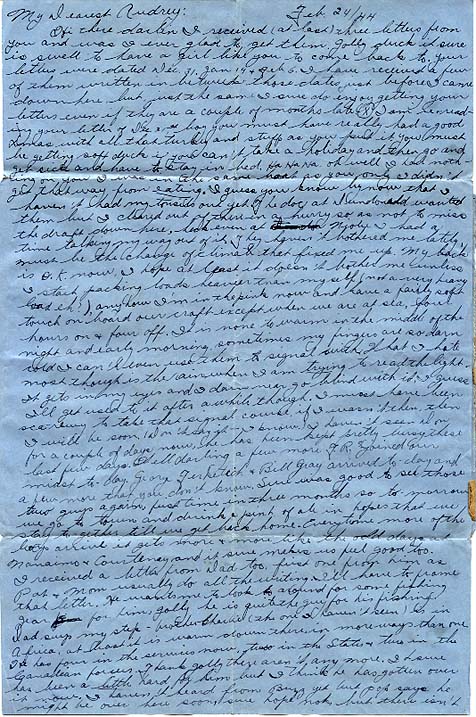 My Dearest Audrey: Feb. 24/44
Hi there darlin I received (at last) three letters from
you and was I ever glad to get them. Golly duck it sure
is swell to have a girl like you to come back to. Your
letters were dated Dec. 31, Jan. 14, & Feb. 6. I have received a few
of them written in between those dates, just before I came
down here but just the same I sure love getting your
letters even if they are a couple of months late. I am answering
in your letter of Dec. & boy you must have really had a good
Xmas with all that turkey and stuff as you put it. You must
be getting soft dyck if you can't take a holiday and then go and
get sick and have to stay in bed. HA HA HA oh well I had
of you I was in the same boat as you only I didn't
get that way from eating. I guess you know by now that I
haven't had my tonsils out yet. The doc at wanted
them but I cleared out of there in a hurry so as not to miss
the draft down here, look even at I had a
time talking my way out of it. They haven't bothered me lately,
must be the change of climate that fixed me up. My back
is O.K. now, I hope, at least it doesn't bother me (unless
I start packing loads heavier than myself (not a very heavy
load eh!) anyhow I'm in the pick now and have a fairly soft
touch on board our craft except when we are at sea, four
hours on & four off. It is none to warm in the middle of the
night and early morning, sometimes my fingers are so darn
cold I can't even use them to signal with. What I hate
most though is the rain when I am trying to read the light
it gets in my eyes and I darn near go blind with it. I guess
I'll get used to it after a while though. I must have been
screwy to take that sigs. course, if I wasn't then, then
I will be soon
for a couple of days now, she has been kept pretty busy these
last few days. Well darling a few more V.R. favoured our
midst to-day, Geary & Bill Gay arrived to-day and
a few more that you don't know. Sure was good to see those
two guys again, first time in three months so to-morrow
we go to town and drink a pint of ale in hopes that we
stay together till we get back home. Everytime more of the
boys arrive it gets more & more like the old days at
Nanaimo & Courtenay and it sure makes us feel good too.
I received a letter from Dad too, first one from him as
Pat & Mom usually do all the writing. I'll have to frame
that letter. He wants me to look around for some fishing
gear for him, golly he is quite the guy for his fishing.
Dad says my step brother Charlie (the one I haven't seen) is in
Africa, at least he is warm down there in more ways than one
He has four in the services now, two in the States & two in the
Canadian forces. Thank golly there aren't any more, I sure
has been a little hard for him but I think he has gotten over
it now. I haven't heard from yet but pop says he
might be over here soon, sure hope not but there isn't